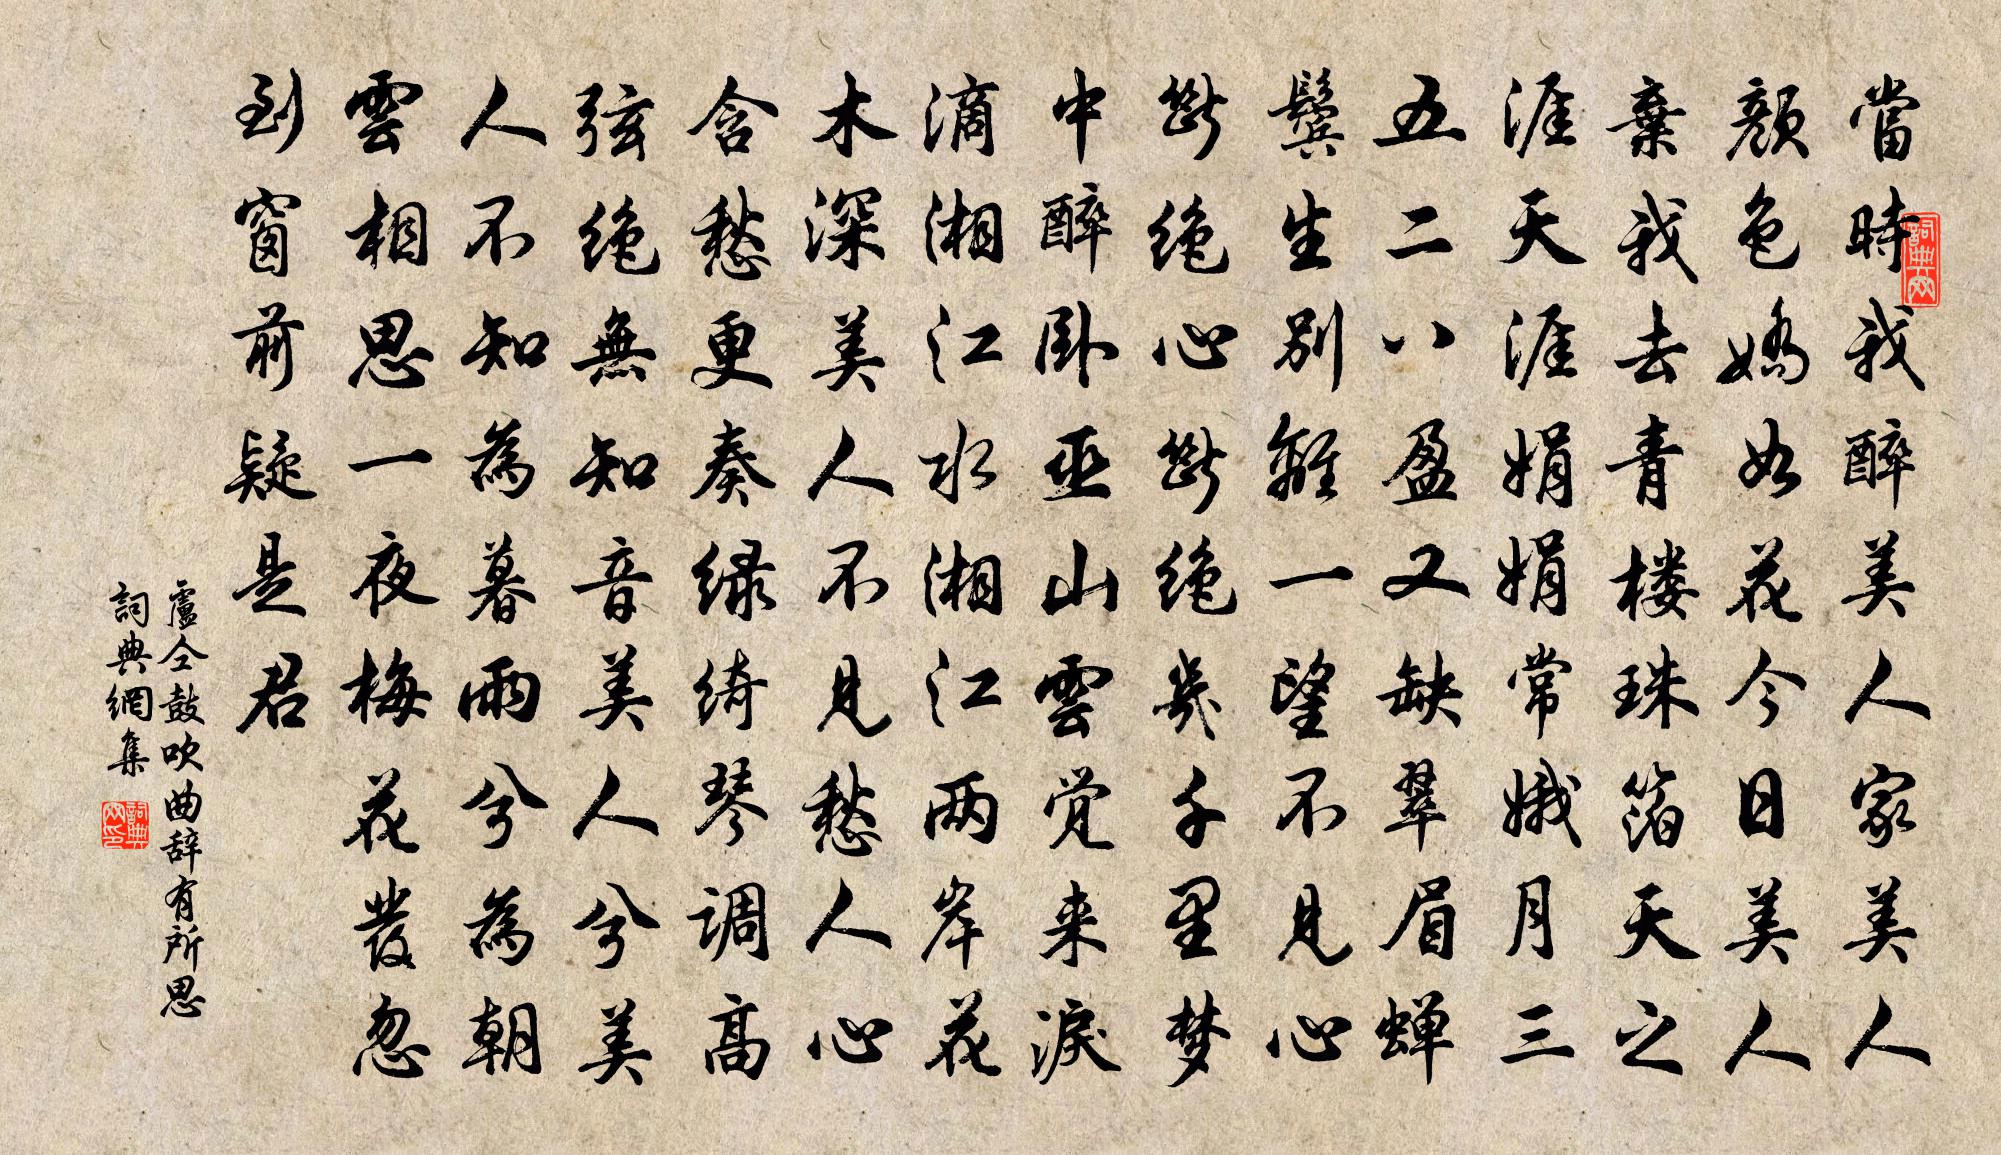 當時我醉美人家美人
顏色嬌如花今日美人
棄我去青楼珠箔天之
涯天涯娟娟常娥月三
五二八盈又缺翠眉蝉
鬓生别離一望不見心
斷绝心斷绝幾千里梦
中醉卧巫山雲觉来淚
滴湘江水湘江两岸花
木深美人不見愁人心
含愁更奏绿绮琴調高
弦绝無知音美人兮美
人不知為暮雨兮為朝
雲相思一夜梅花發忽
到窗前疑是君
盧仝鼓吹曲辞有所思
詞典網集
詞典網
詞典網印